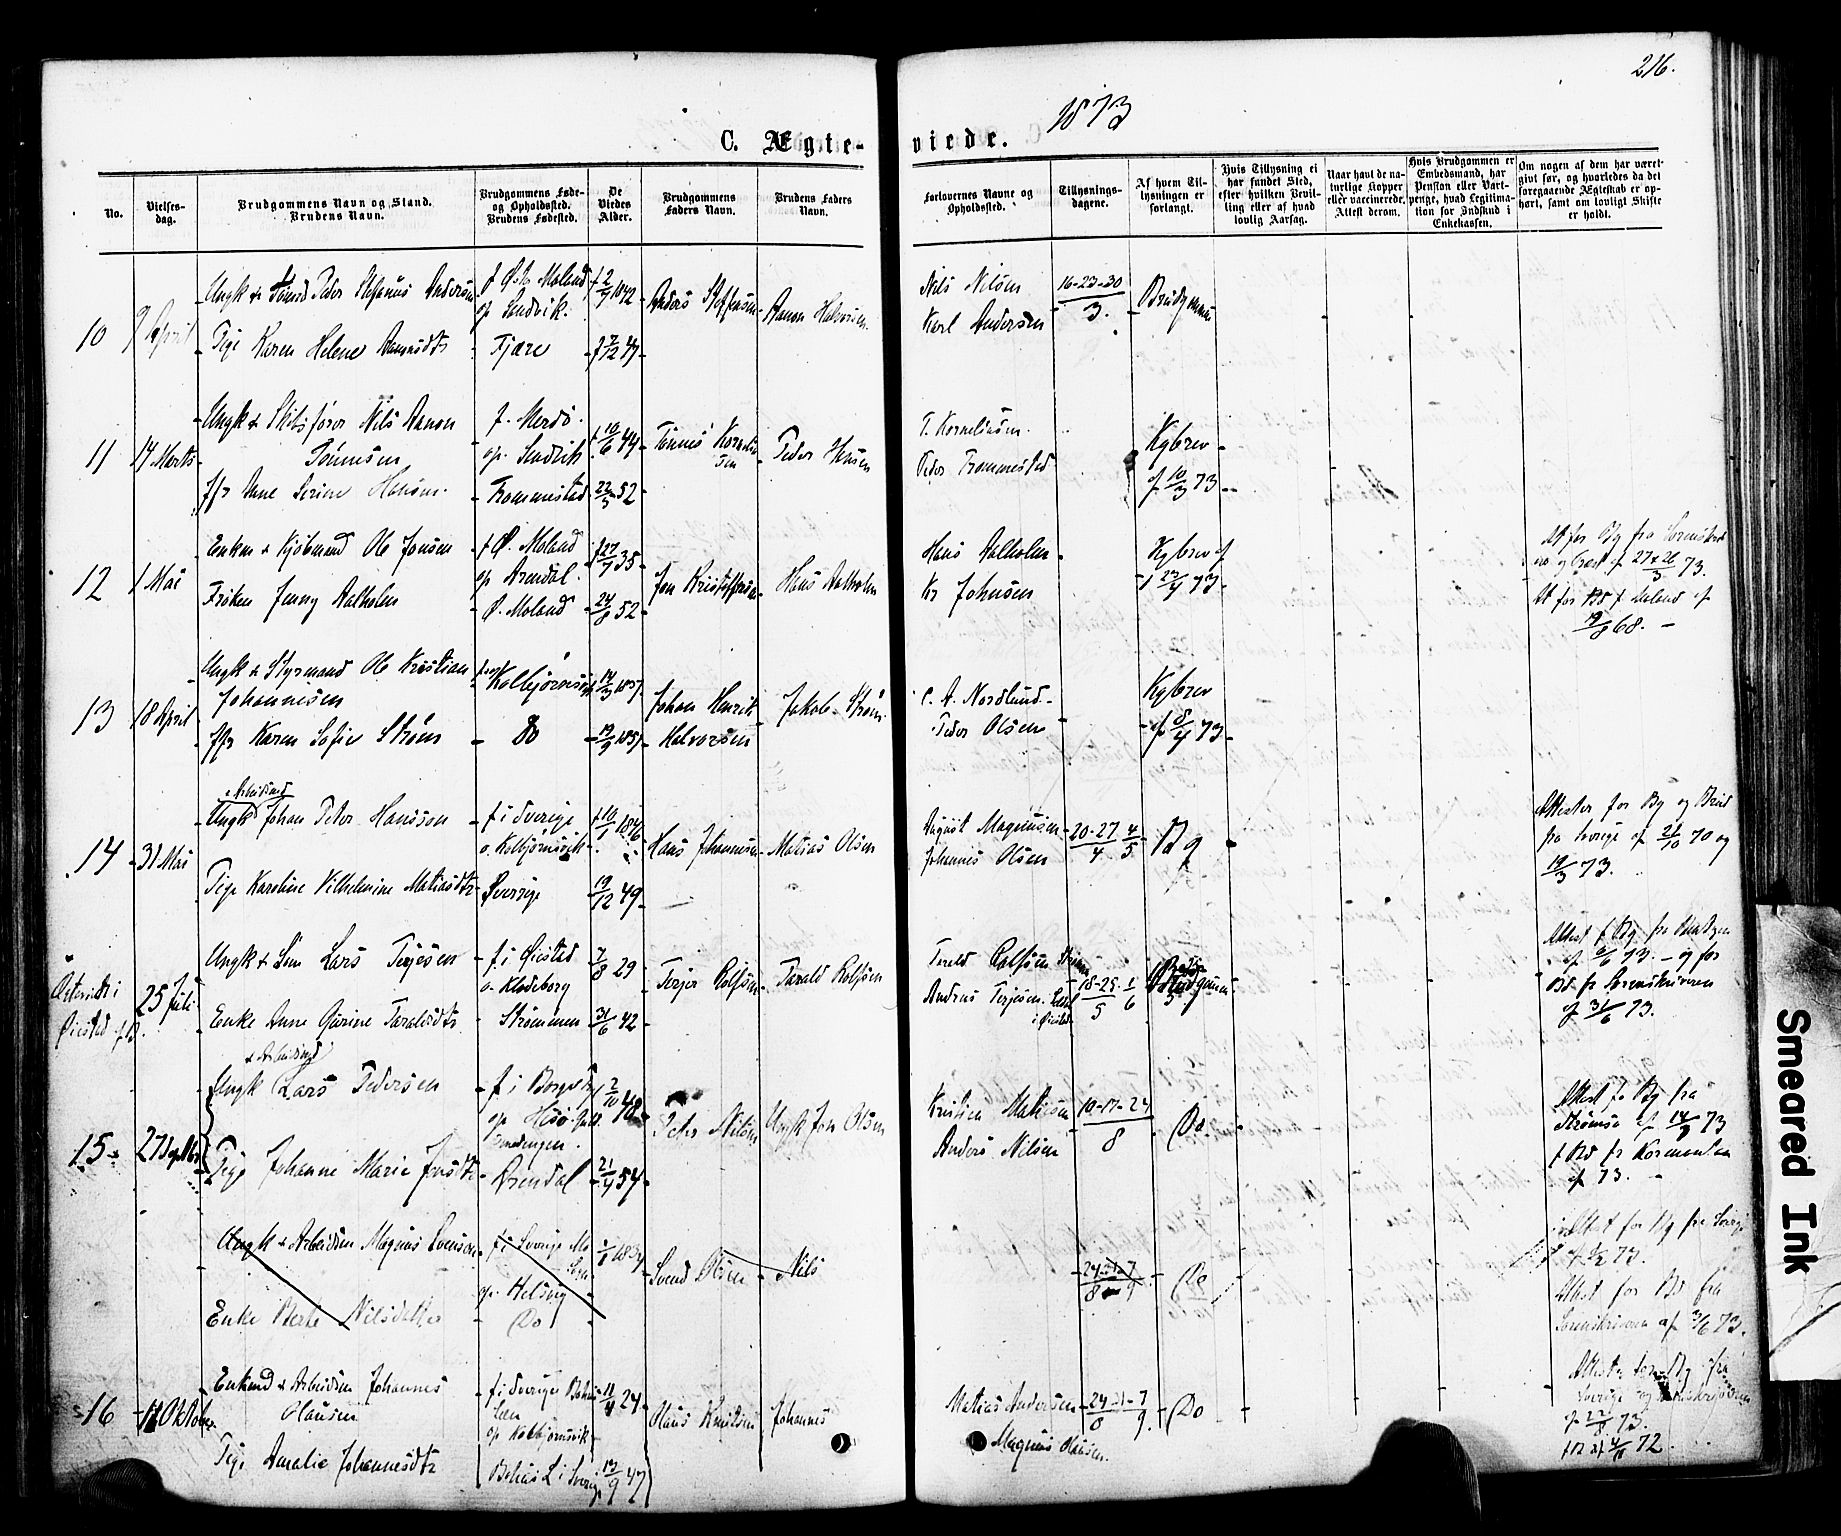 216.
1873
C. Ægte-
viede.
No.
Vielses-
dag.
Brudgommens Navn og Stand.
Brudens Navn.
Brudgommens Føde-
og Opholdssted.
Brudens Fødested.
De
Viedes
Alder.
Brudgommens
Faders Navn.
Brudens Faders
Navn.
Forlovernes Navne og
Opholdssted.
Tillysnings-
dagene.
Af hvem Til-
lysningen er
forlangt.
Hvis Tillysning ei
har fundet Sted,
efter hvilken Bevil-
ling eller af hvad
lovlig Aarsag.
Naar havt de na-
turlige Kopper
eller vaccinerede.
Attest derom.
Hvis Brudgommen er
Embedsmand, har
Pension eller Vart-
penge, hvad Legitima-
tion for Indskud i
Enkekassen.
Om nogen af dem har været
givt før, og hvorledes da det
foregaaende Ægteskab er op-
hørt, samt om lovligt Skifte
er holdt.
10
9 April
Ungk & Tømmd Peder Stefanus Andersen
f Øst. Moland
op Sandvik.
Anders Steffensen
Aanon Halvorsen
Pige Karen Helene Aanonsdtr
Nils Nilsen
Karl Andersen
16-23-30
3.
Brudgommen
11
14 Marts
Ungk & Skibsfører Nils Aanon
Tønnesen
f. Merdø.
op. Sandvik
10/6 44
Tønnes Korneliu
sen
Peder Hansen
Anne Serine Hansen
Frommestad
22/3 52
T. Korneliusen.
Peder Frommestad
Kgbrev
af 10/3 73
12
1 Mai
Enkm & Kjøbmand Ole Jonsen
f Ø. Moland
op Arendal.
27/7 35
Jon Kristoffersen
Hans Aalholm
Frøken Jenny Aalholm
Ø. Moland
24/8 52
Hans Aalholm
Kr Johnsen
Kgbrev af
23/4 73
At for Bg fra Sorenskriv
af 27 & 26/3 73.
At for Bd f Moland af
19/8 68.
13
18 April
Ungk & Styrmand Ole Kristian
Johannesen
Kolbjørnsvik
14/3 1857
Johan Henrik
Halvorsen
Jakob Strøm
Karen Sofie Strøm
Do
C. A. Nordlund
Peder Olsen
Kgbrev
af 8/4 73
14
31 Mai
& Arbeidsmd
Ungk Johan Peter Hansson
f i Sverige
o. Kolbjørnsvik
10/1 1846
Hans Johannesen
Matias Olsen
Pige Karoline Vilhelmine Matiasdtr
Sverrige
19/12 49
August Magnusen
Johannes Olsen
20-27/4 4/5
Bg
Attester for Bg og Brud
fra Sverige af 26/10 70 og
19/3 73.
Øiestad
25 Juli
Ungk & Søm Lars Terjesen
f. i Øiestad
o. Klodeborg
7/8 29
Terje Rolfsen
Tarald Rolfsen
Enke Anne Gurine Taraldsdtr
Strømmen
31/6 42
Andreas Terjesen
18-25/5 1/6
Brudgommen
Attest f Bg fra
af 6/6 73. og for
Bd fr Sorenskriveren
af 31/6 73.
15
27 Septbr
& Arbeidsmd
Ungk Lars Pedersen
2/10 48
Peter Nilsen
Ungk Jon Olsen
Pige Johanne Marie Jonsdtr
Arendal
21/4 54
Kristian Matiesen
Anders Nilsen
10-17-24
8
Do
Attest for Bg fra
Strømsø af 14/9 73
af 73.
Ungk & Arbeidsm Magnus Svensen
f i Sverige
op. Helsvig
Svend Olsen
Nils
Enke Berte Nilsdatter
Do
24-31-7
8 9
Do
Attest for Bg fra Sverige
Attest for Bd fra
Sorenskriveren af 3/6 73.
16
11 Oktober
Enkemd & Arbeidsm Johannes
Olausen
f. i Sverige Bohus
Læn
op Kolbjørnsvik
11/4 24
Olaus Knudsen
Johannes
Pige Amalie Johannesdtr
Bohus L i Sverige
13/9 47
Matias Andersen
Magnus Olausen.
24-31-7
8 9.
Do
Attester for Bg fra
Sverige og Sorenskriveren
af 22/8 73.
Smeared Ink